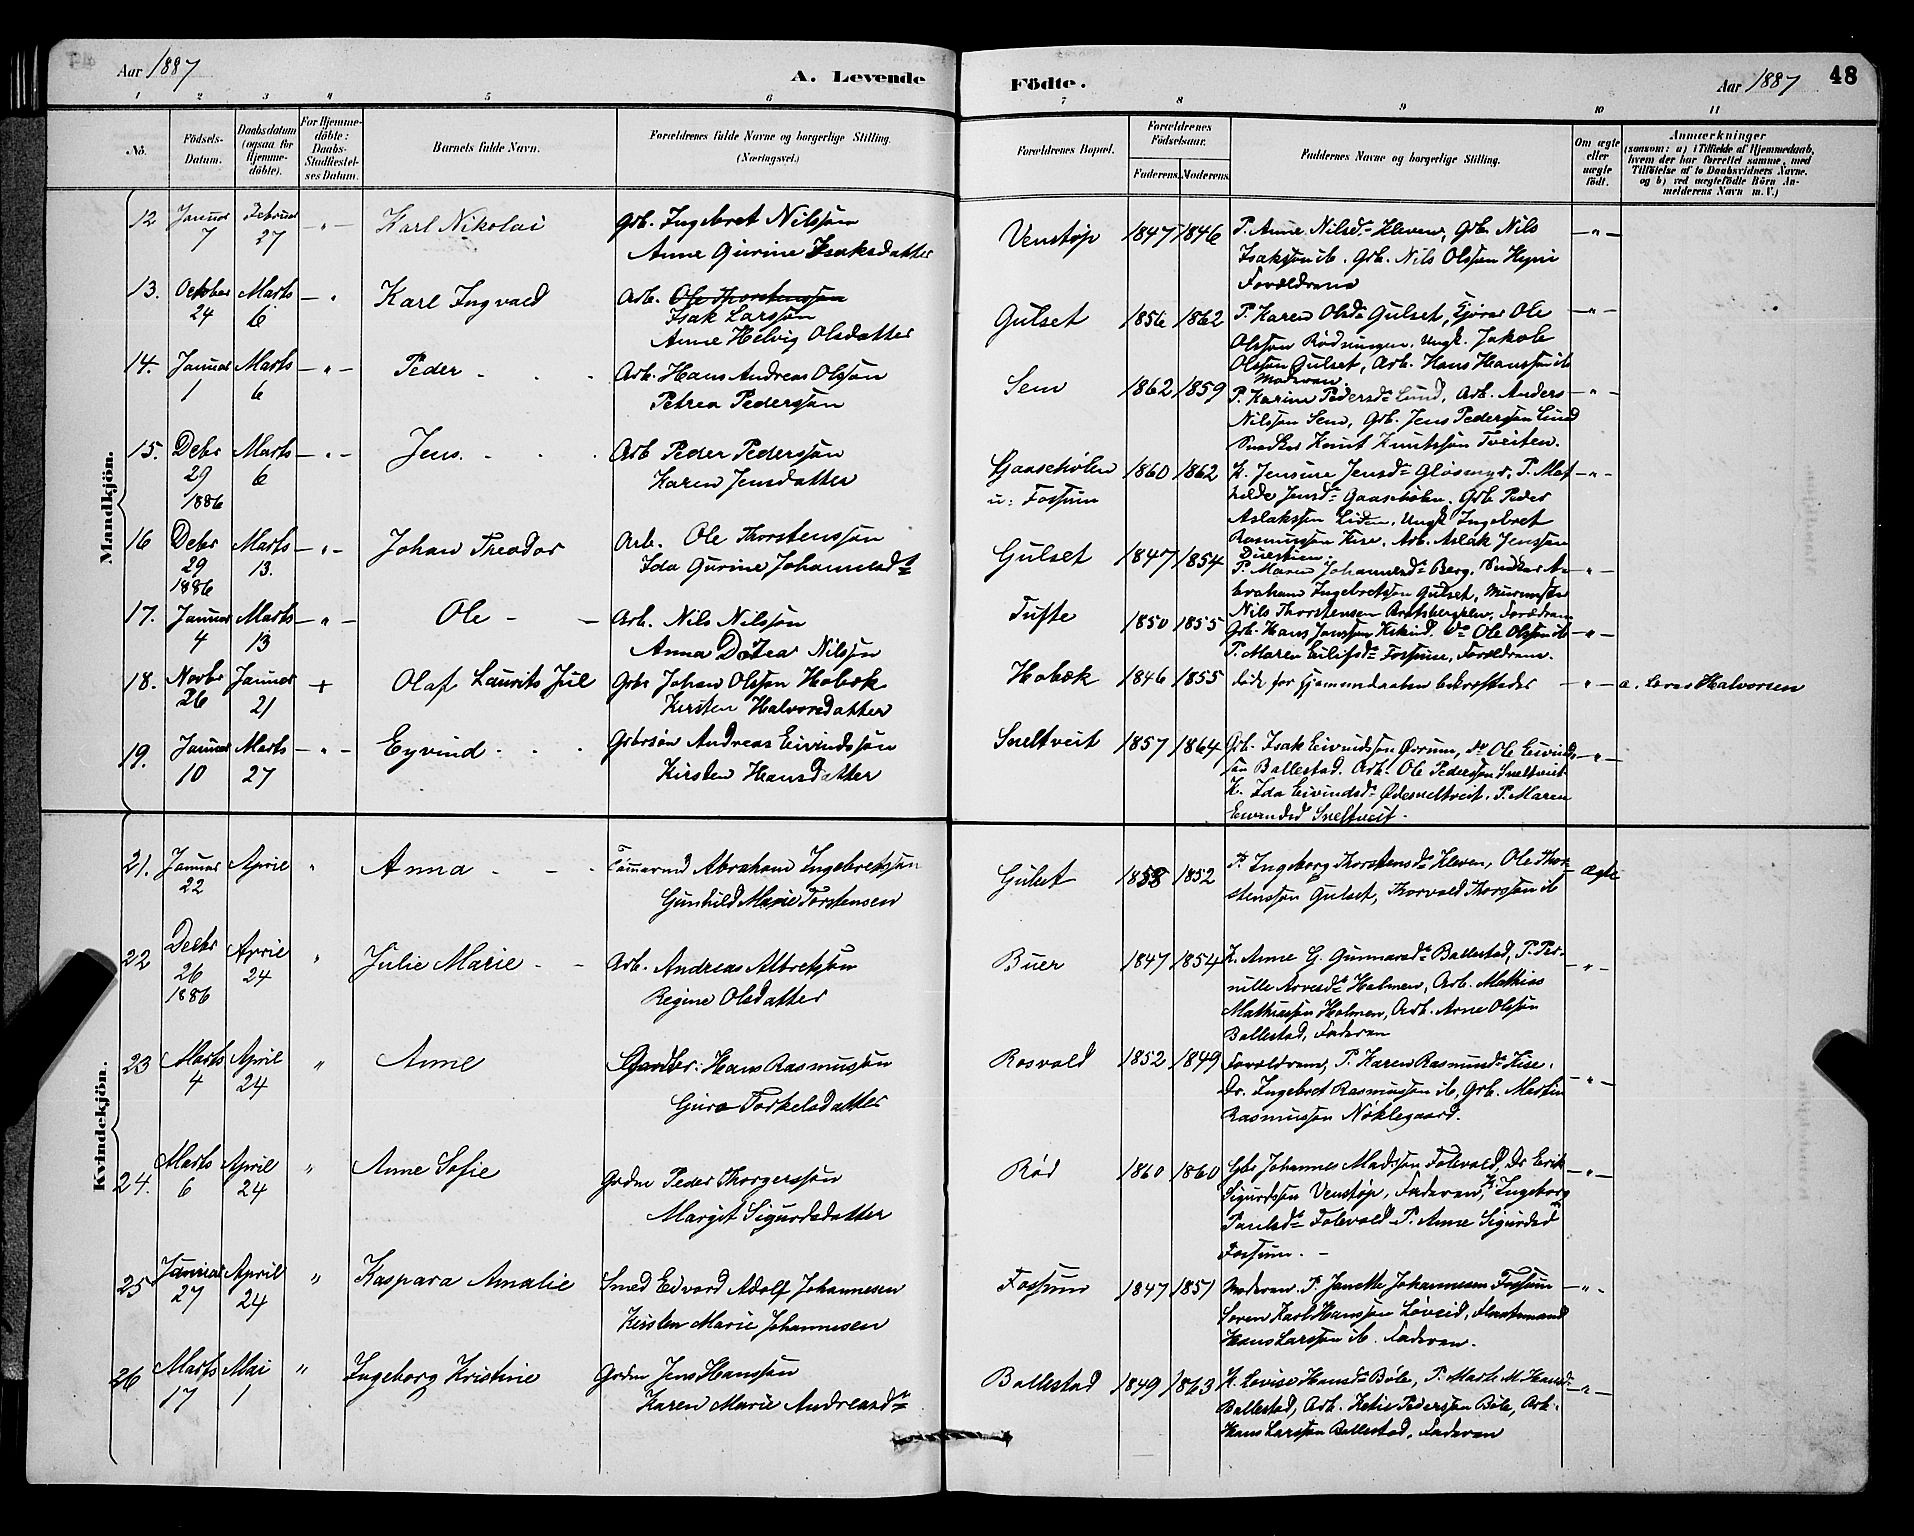 Aar 1887
A. Levende
Födte.
Aar 1887
48
1 2 3 4 5 6 7 8 9 10 11
No.
Födsels-
Datum.
Daabsdatum
(ogsaa for
Hjemme-
döbte).
For Hjemme-
döbte:
Daabs-
Stadfæstel-
ses Datum.
Barnets fulde Navn.
Forældrenes fulde Navne og borgerlige Stilling.
(Næringsvei.)
Forældrenes Bopæl.
Forældrenes
Födselsaar.
Faderens. Moderens.
Faddernes Navne og borgerlige Stilling.
Om ægte
eller
uægte
födt.
Anmærkninger
(saasom: a) i Tilfælde af Hjemmedaab,
hvem der har forrettet samme, med
Tilföielse af to Daabsvidners Navne,
og b) ved uægtefödte Börn An-
melderens Navn m. V.)
Mandkjön.
12 Januar 7 Februar 27 - " - Karl Nikolai
Grb. Ingebret Nilssøn
Anne Gurine Isaksdatter
Venstøp 1847 1846
P. Anne Nilsd. Kleven, Grb. Nils
Isakssøn ib. Grb. Nils Olssøn Hyni
Forældrene
- " -
13. October 24 Marts 6 - " Karl Ingvald
Arb. Ole Thorstenssøn
Isak Larssøn
Anne Helvig Olsdatter
Gulset 1856 1862
P. Karen Olsd. Gulset, Gjører Ole
Olssøn Rødningen. Ungk. Jakob
Olssøn Gulset, Arb. Hans Hanssøn ib
Moderen.
- " -
14. Januar 1 Marts 6 - " - Peder
Arb. Hans Andreas Olssøn
Petrea Pederssøn
Sem 1862 1859
P. Karine Pedersd. Lund, Arb. Anders
Nilssøn Sem, Grb. Jens Pederssøn Lund
Snedker Knut Knutssøn Tveiten.
- " -
15. Debr 29 1886 Marts 6 - " - Jens
Arb Peder Pederssøn
Karen Jensdatter
Gaasehølen
u: Fossum
1860 1862
K. Jensine Jensd. Gløsmyr, P. Mat
hilde Jensd. Gaaseholen. Grb Peder
Aslakssøn Liden, Ungk Ingebret
Rasmussøn Kise, Arb. Aslak Jenssøn
- " -
16 Debr 29 1886 Marts 13. - " - Johan Theodor
Arb. Ole Thorstenssøn
Ida Gurine Johannesd.
Gulset 1847 1854
P. Maren Johannesd. Berg, Snedker A-
braham Ingebretssøn Gulset, Murmester
Nils Thorstensen Bratsbergklev, Forældrene
- " -
17. Januar 4 Marts 13 - " - Ole
Arb. Nils Nilssøn
Anna Dotea Nilssøn
Tufte 1850 1855
Grb. Hans Janssøn Ole Olssøn ib
P. Maren Eilifsd. Fossum, Forældrene.
- " -
18. Novbr 26 Januar 21 + Olaf Laurits Jul
Grbr Johan Olssøn Hobæk
Kirsten Halvorsdatter
Hobæk 1846 1855
døde før Hjemmedaaben bekræftedes
- " - a. Lars Halvorsen
19. Januar 10 Marts 27 - " - Eyvind
Grbrsøn Andreas Eivindssøn
Kirsten Hansdatter
Sneltveit 1857 1864
Grb. Isak Eivindssøn Ørum, do Ole Eivinds
søn Ballestad. Arb. Ole Pederssøn Sneltveit
K. Ida Eivindsd. Ødesneltveit, P. Maren
Eivindsd Sneltveit.
- " -
Kvindekjön.
21. Januar 22 April " Anna
Tømmermd Abraham Ingebretssøn
Gunhild Marie Torstensen
Gulset 1858 1852
P. Ingeborg Thorstensd. Kleven, Ole Thor-
stenssøn Gulset, Thorvald Thorssøn ib
- Ægte
22 Decbr 26 1886 April 24 " Julie Marie
Arb. Andreas Albretssøn
Regine Olsdatter
Buer 1847 1854
K. Anne G. Gunnarsd. Ballestad, P. Per-
nille Arvesd. Holmen, Arb. Mathias
Mathiassøn Holmen, Arb. Arne Olssøn
Ballestad, Faderen
- " -
23 Marts 4 April 24 " Anne
Gaardbr: Hans Rasmussøn
Guro Torkelsdatter
Rosvald 1852 1849
Forældrene, P. Karen Rasmusd. Kise.
Do. Ingebret Rasmussøn ib, Grb. Martin
Rasmussøn Nøklegaard.
- " -
24. Marts 6 April 24 " Anne Sofie
Grdm Peder Thorgerssøn
Margit Sigurdsdatter
Rød 1860 1860
Gbr Johannes Madssøn Folevald, Do Erik
Sigurdssøn Venstøp, Faderen, K. Ingeborg
Paulsd. Folevald P. Anne Sigurdsd
Fossum. -
- " -
25 Januar 27 April 24 " Kaspara Amalie
Smed Edvard Adolf Johannesen
Kirsten Marie Johannesen
Fossum 1847 1851
Moderen. P. Janette Johannesen Fossum
Søren Karl Hanssøn Løveid, Fløttemand
Hans Larssøn ib. Faderen.
- " -
26 Marts 17 Mai 1 " Ingeborg Kristine
Grdm Jens Hanssøn
Karen Marie Andreasd.
Ballestad 1849 1863
K. Lovise Hansd. Bøle, P. Marte M Hansd.
Ballestad, Arb. Ketil Pederssøn Bøle, Arb.
Hans Larssøn Ballestad, Faderen
- " -